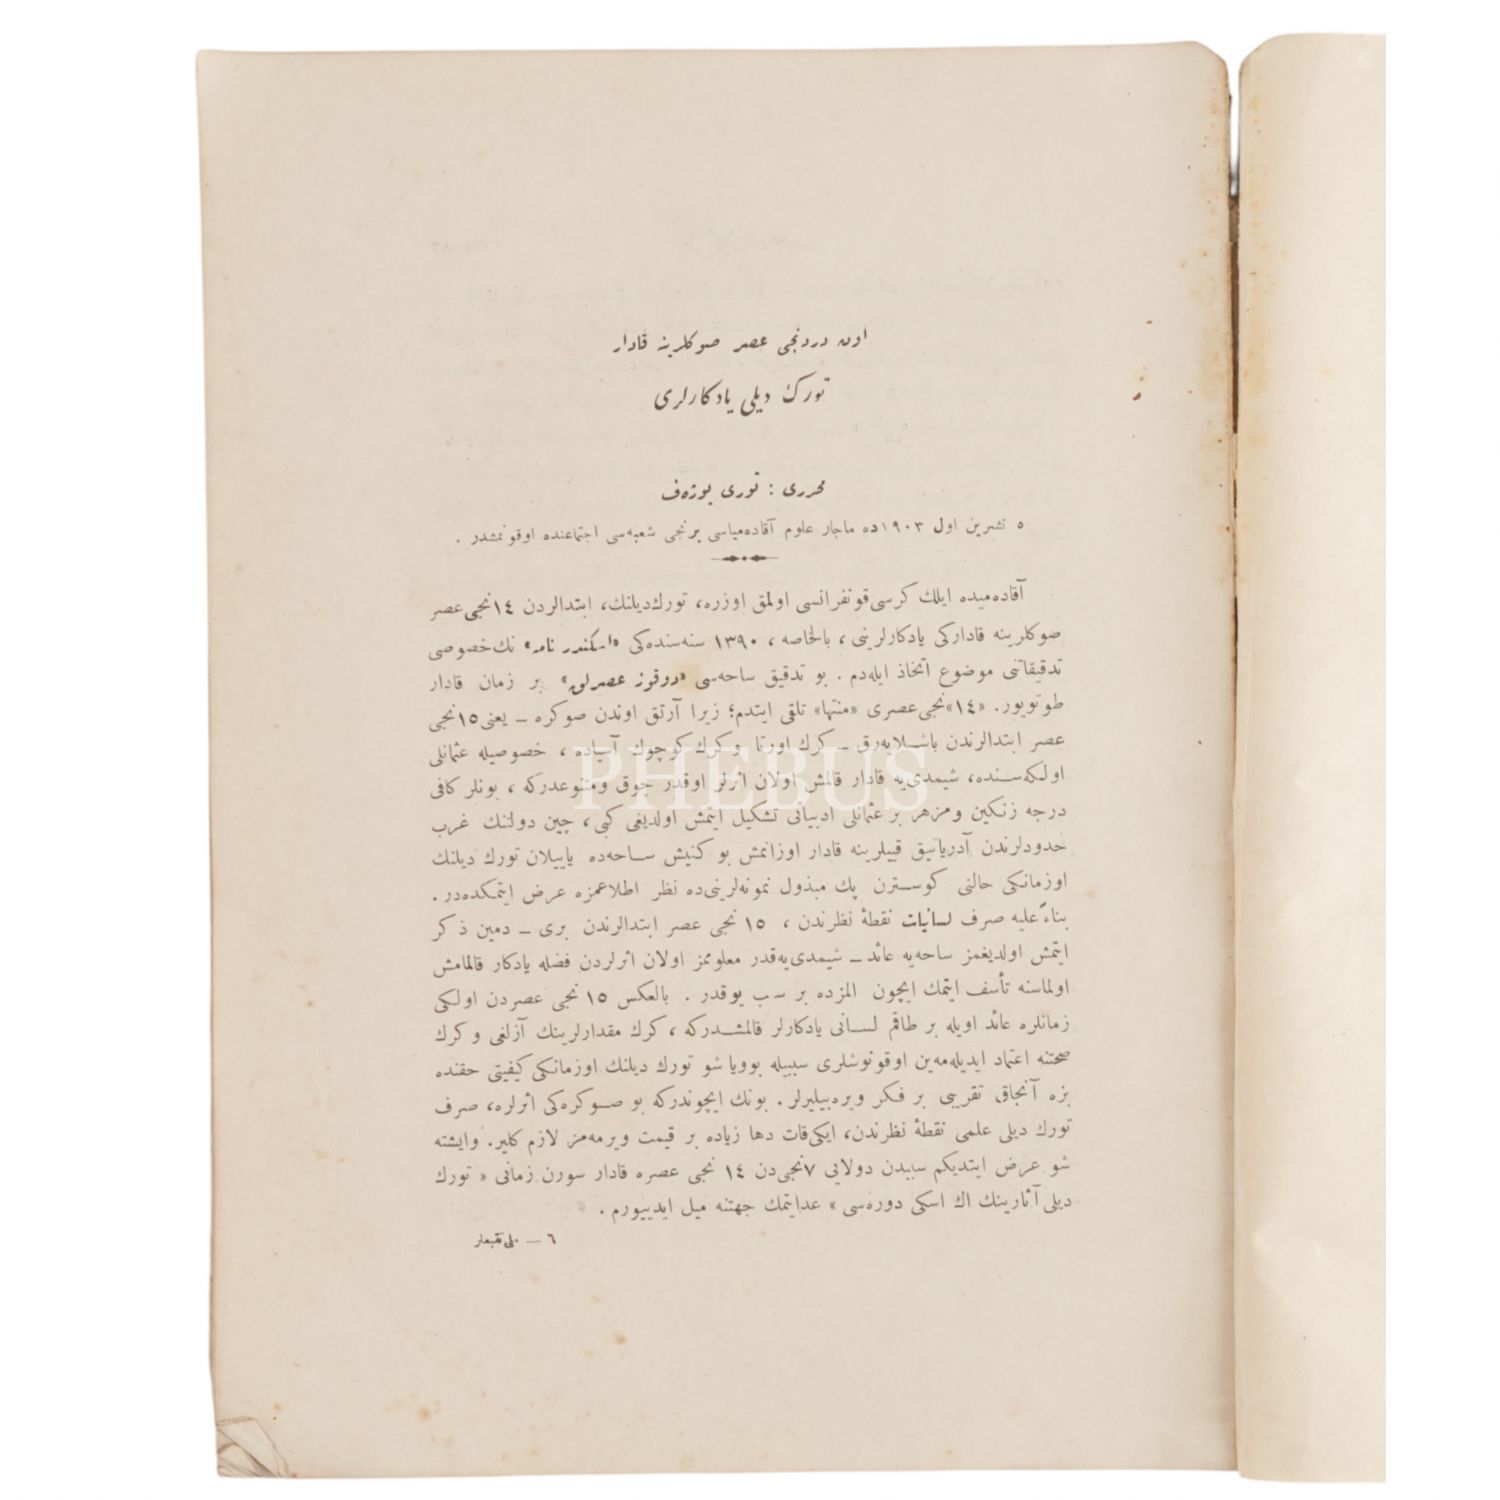 اون دردنجی عصر صوکلرینه قادار
تورك دیلی یادکارلری
محرری : توری یوژه‌ف
٥ تشرین اول ١٩٠٣ده ماجار علوم آقاده‌میاسی برنجی شعبه‌سی اجتماعنده اوقونمشدر .
آقاده‌میده ایلك کرسی قونفرانسی اولمق اوزره، تورك‌دیلنك، ابتدالردن ١٤نجی عصر
صوکلرینه قادارکی یادکارلرینی، بالخاصه، ١٣٩٠ سنه‌سنده‌کی «اسکندر نامه» نك خصوصی
تدقیقاتنی موضوع اتخاذ ایله‌دم . بو تدقیق ساحه‌سی «دوقوز عصرلق» بر زمان قادار
طوتویور. «١٤»نجی عصری «منتها» تلقی ایتدم؛ زیرا آرتق اوندن صوکره ــ یعنی ١٥نجی
عصر ابتدالرندن باشلایه‌رق ــ کرك اورتا وکرك کوچوك آسیاده ، خصوصیله عثمانلی
اولکه‌سنده، شیمدی‌یه قادار قالمش اولان اثرلر اوقدر چوق ومتنوعدرکه ، بونلر کافی
درجه زنکین ومزهر بر عثمانلی ادبیاتی تشکیل ایتمش اولدیغی کبی، چین دولتنك غرب
حدودلرندن آدریاتیق قییلرینه قادار اوزانمش بو کنیش ساحه‌ده یاییلان تورك دیلنك
اوزمانکی حالنی کوسترن پك مبذول نمونه‌لرینی‌ده نظر اطلاعمزه عرض ایتمکده‌در .
بناءً علیه صرف لسانیات نقطۀ نظرندن ، ١٥ نجی عصر ابتدالرندن بری ــ دمین ذکر
ایتمش اولدیغمز ساحه‌یه عائد ــ شیمدی‌یه‌قدر معلوممز اولان اثرلردن فضله یادکار قالمامش
اولماسنه تأسف ایتمك ایچون المزده بر سبب یوقدر . بالعکس ١٥ نجی عصردن اولکی
زمانلره عائد اویله بر طاقم لسانی یادکارلر قالمشدرکه ، کرك مقدارلرینك آزلغی وکرك
صحتنه اعتماد ایدیله‌مه‌ین اوقونوشلری سببیله بوویا شو تورك دیلنك اوزمانکی کیفیتی حقنده
بزه آنجاق تقریبی بر فکر ویره‌بیلیرلر . بونك ایچوندرکه بو صوکره‌کی اثرلره، صرف
تورك دیلی علمی نقطۀ نظرندن، ایکی‌قات دها زیاده بر قیمت ویرمه‌مز لازم کلیر. وایشته
شو عرض ایتدیکم سببدن دولایی ٧نجی‌دن ١٤ نجی عصره قادار سورن زمانی « تورك
دیلی آثارینك اك اسکی دوره‌سی » عدایتمك جهتنه میل ایدییورم .
٦ — ملی تتبعلر
PHEBUS